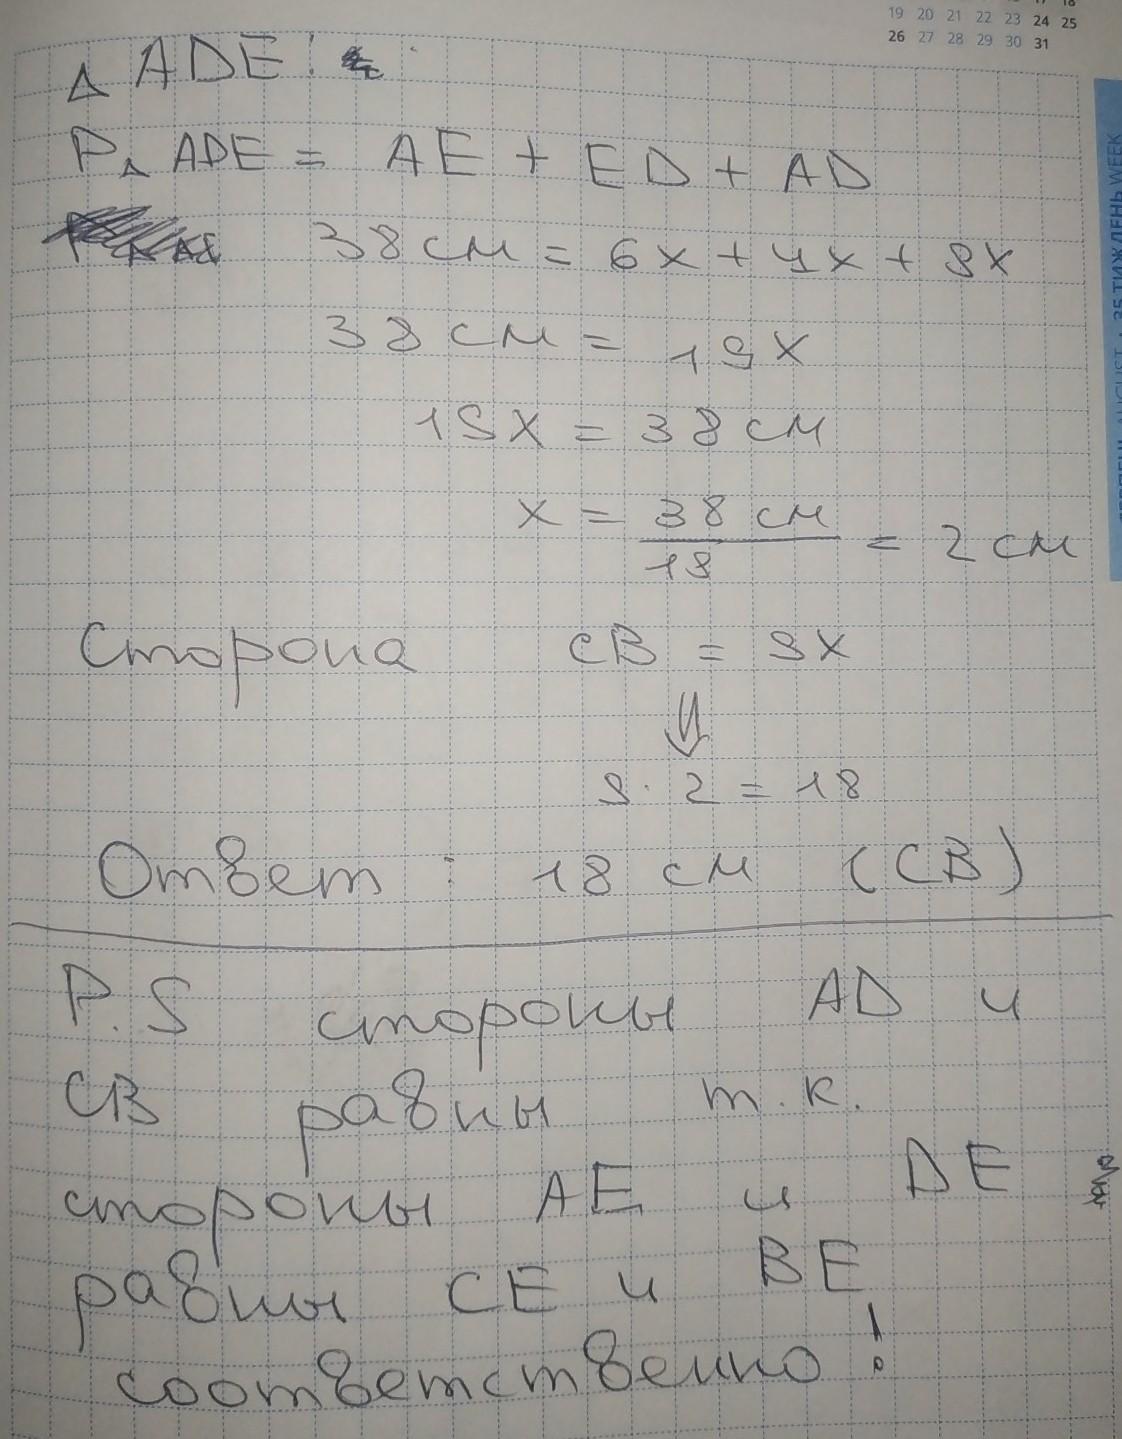 19 20 21 22 23 24 25
26 27 28 29 30 31
35 ТИЖДЕНЬ WEEK
△ ADE:
P△ ADE = AE + ED + AD
38 см = 6x + 4x + 9x
38 см = 19x
19x = 38 см
x = 38 см / 19 = 2 см
Сторона CB = 9x
⇓
9 · 2 = 18
Ответ : 18 см (CB)
P.S стороны AD и
CB равны т.к.
стороны AE и DE
равны CE и BE
соответственно!